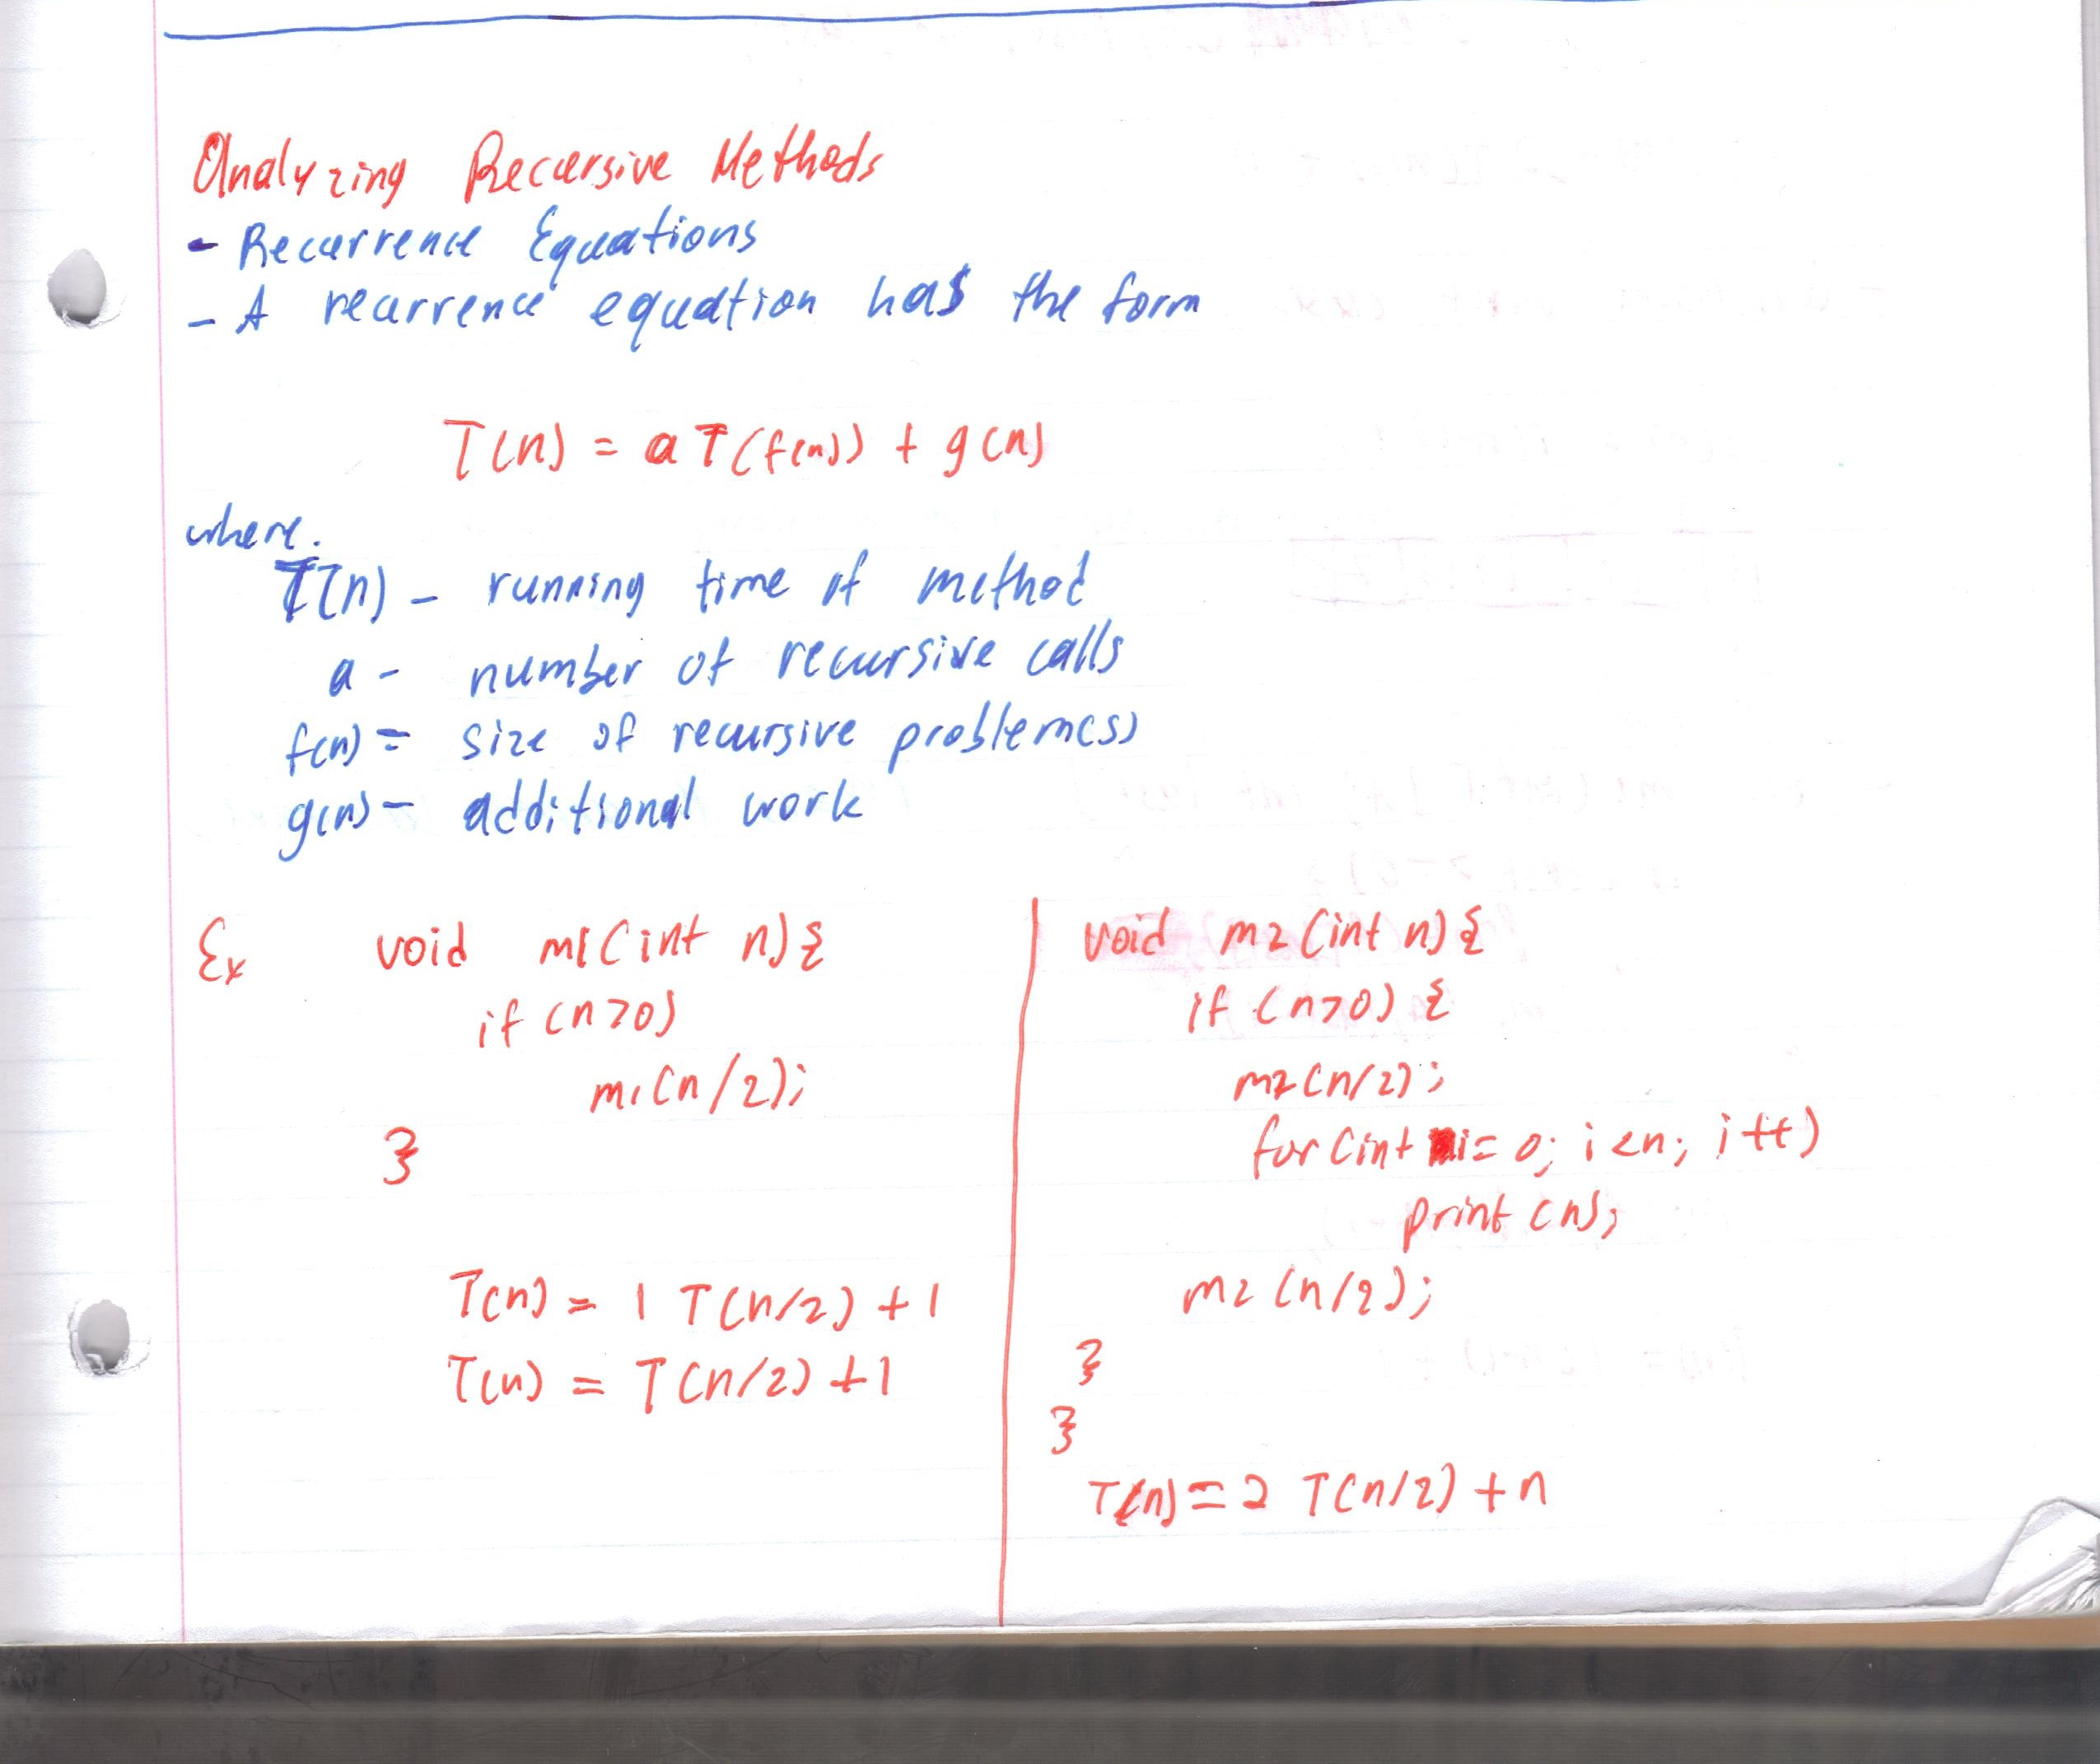 Analyzing Recursive Methods
- Recurrence Equations
- A recurrence equation has the form
T(n) = a T(f(n)) + g(n)
where.
T(n) - running time of method
a - number of recursive calls
f(n) = size of recursive problem(s)
g(n) - additional work
Ex
void m1(int n){
if (n>0)
m1(n/2);
}
T(n) = 1 T(n/2) + 1
T(n) = T(n/2) + 1
void m2(int n){
if (n>0) {
m2(n/2);
for(int i=0; i<n; i++)
print(n);
m2(n/2);
}
}
T(n) = 2 T(n/2) + n